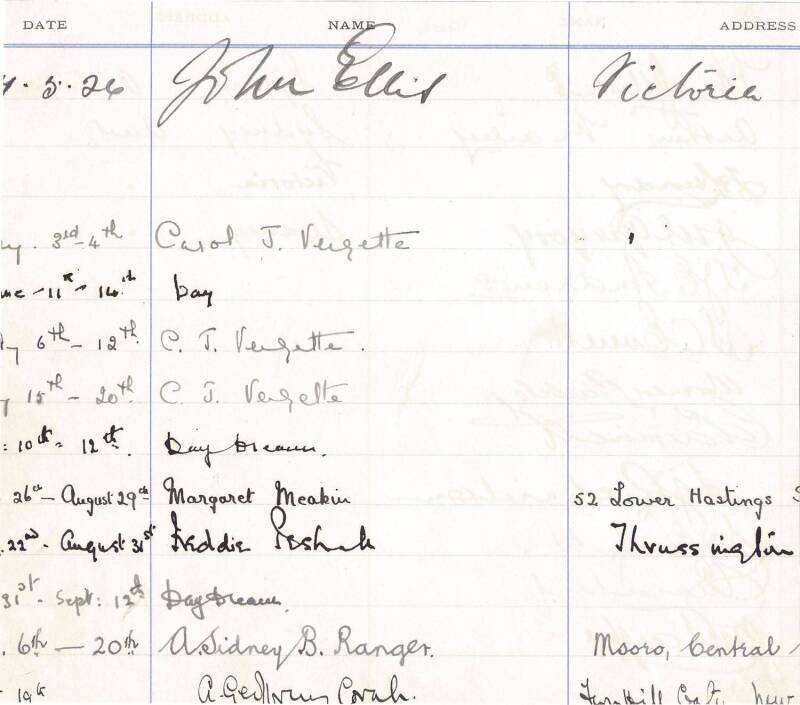 DATE NAME ADDRESS
5.26 John Ellis Victoria
3rd-4th Carol J. Vergette
11th - 14th Day
6th - 12th C. J. Vergette.
15th - 20th C. J. Vergette
10th - 12th. Day Dream.
26th - August 29th Margaret Meakin 52 Lower Hastings S
22nd - August 31st Freddie Thrussington
31st - Sept: 12th Day Dream.
6th - 20th A. Sidney B. Ranger. Mooro, Central
19th